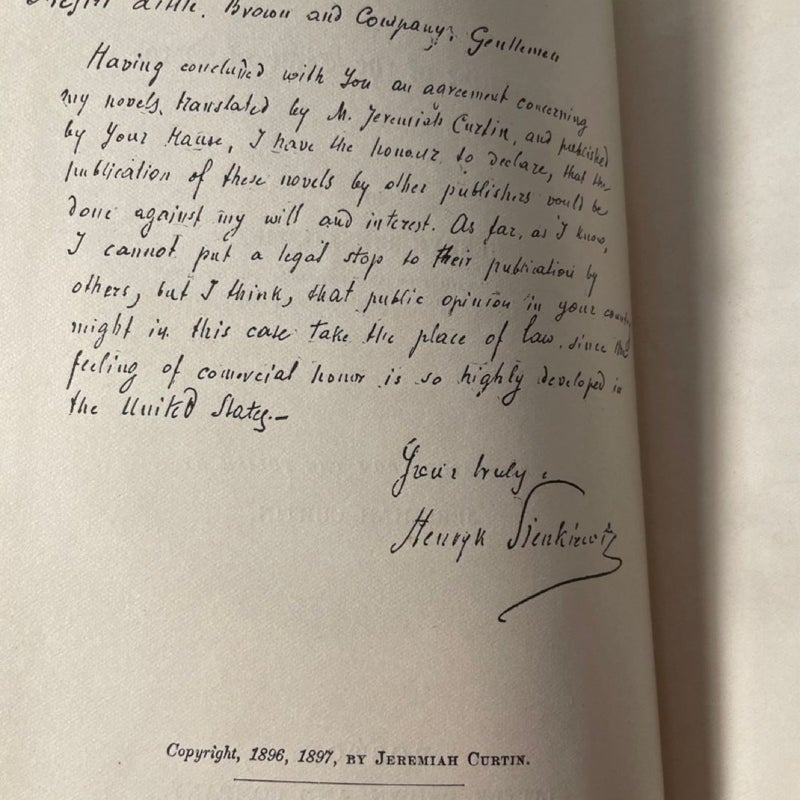 Messrs Little, Brown and Company. Gentlemen
Having concluded with You an agreement concerning
my novels, translated by M. Jeremiah Curtin, and published
by Your House, I have the honour to declare, that the
publication of these novels by other publishers would be
done against my will and interest. As far, as I know,
I cannot put a legal stop to their publication by
others, but I think, that public opinion in your country
might in this case take the place of law, since the
feeling of comercial honor is so highly developed in
the United States.—
Your truly.
Henryk Sienkiewicz
Copyright, 1896, 1897, BY JEREMIAH CURTIN.